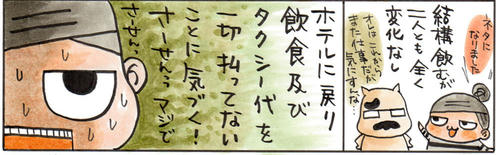 ネタに
なりました
結構飲むが
二人とも全く
変化なし
オレはこれから
また仕事だが
気にすんな…
ホテルに戻り
飲食及び
タクシー代を
一切払ってない
ことに気づく！
さーせんっマジで
さーせんっ